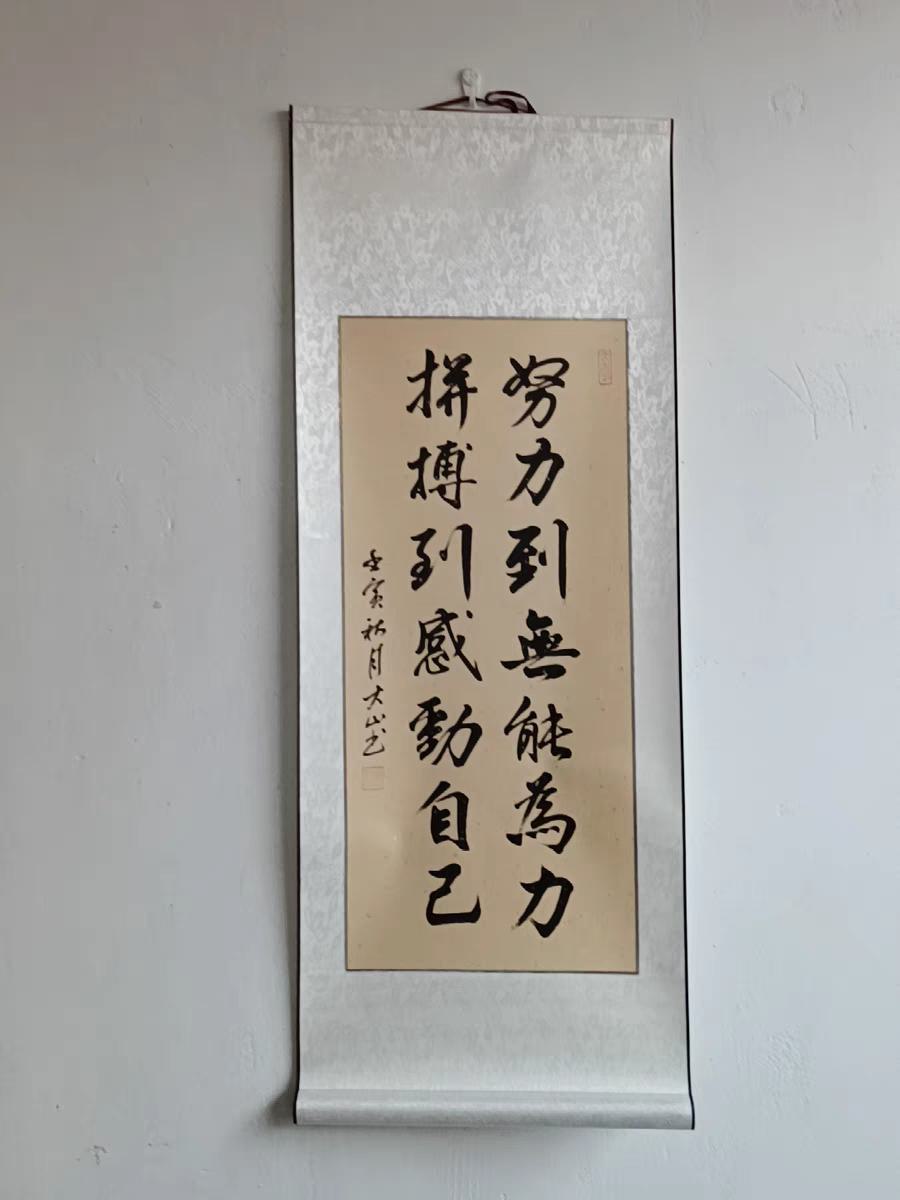 努力到無能為力
拼搏到感動自己
壬寅秋月大山书